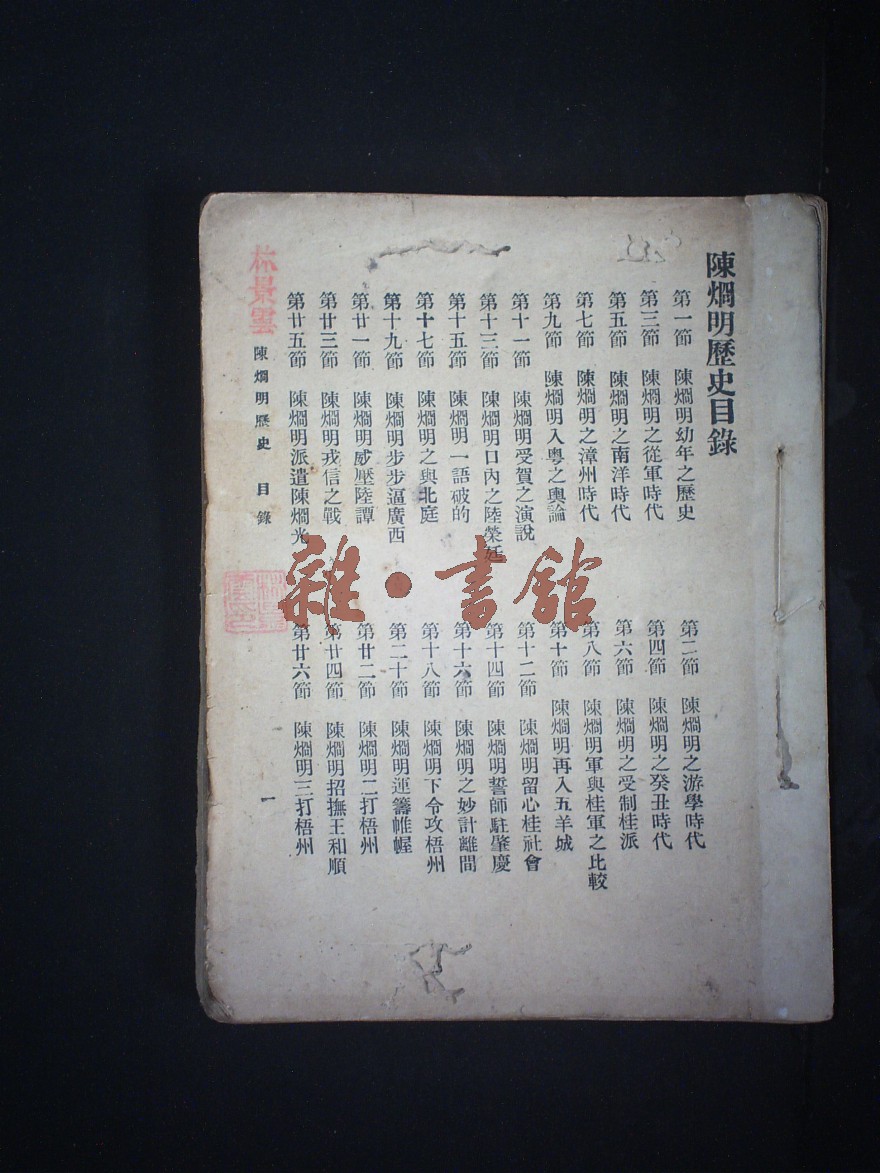 陳烱明歷史目錄
第一節 陳烱明幼年之歷史 第二節 陳烱明之游學時代
第三節 陳烱明之從軍時代 第四節 陳烱明之癸丑時代
第五節 陳烱明之南洋時代 第六節 陳烱明之受制桂派
第七節 陳烱明之漳州時代 第八節 陳烱明軍與桂軍之比較
第九節 陳烱明入粵之輿論 第十節 陳烱明再入五羊城
第十一節 陳烱明受賀之演說 第十二節 陳烱明留心桂社會
第十三節 陳烱明口內之陸榮廷 第十四節 陳烱明誓師駐肇慶
第十五節 陳烱明一語破的 第十六節 陳烱明之妙計離間
第十七節 陳烱明之與北庭 第十八節 陳烱明下令攻梧州
第十九節 陳烱明步步逼廣西 第二十節 陳烱明運籌帷幄
第廿一節 陳烱明威壓陸譚 第廿二節 陳烱明二打梧州
第廿三節 陳烱明戎信之戰 第廿四節 陳烱明招撫王和順
第廿五節 陳烱明派遣陳烱光 第廿六節 陳烱明三打梧州
陳烱明歷史 目錄 一
林景雲
雜·書館